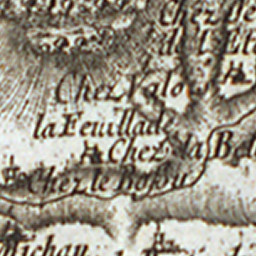 Chez de
de L'Et
Chez Valo
la Feuillade
Chez la Bel
Chez le Bossu
Michau